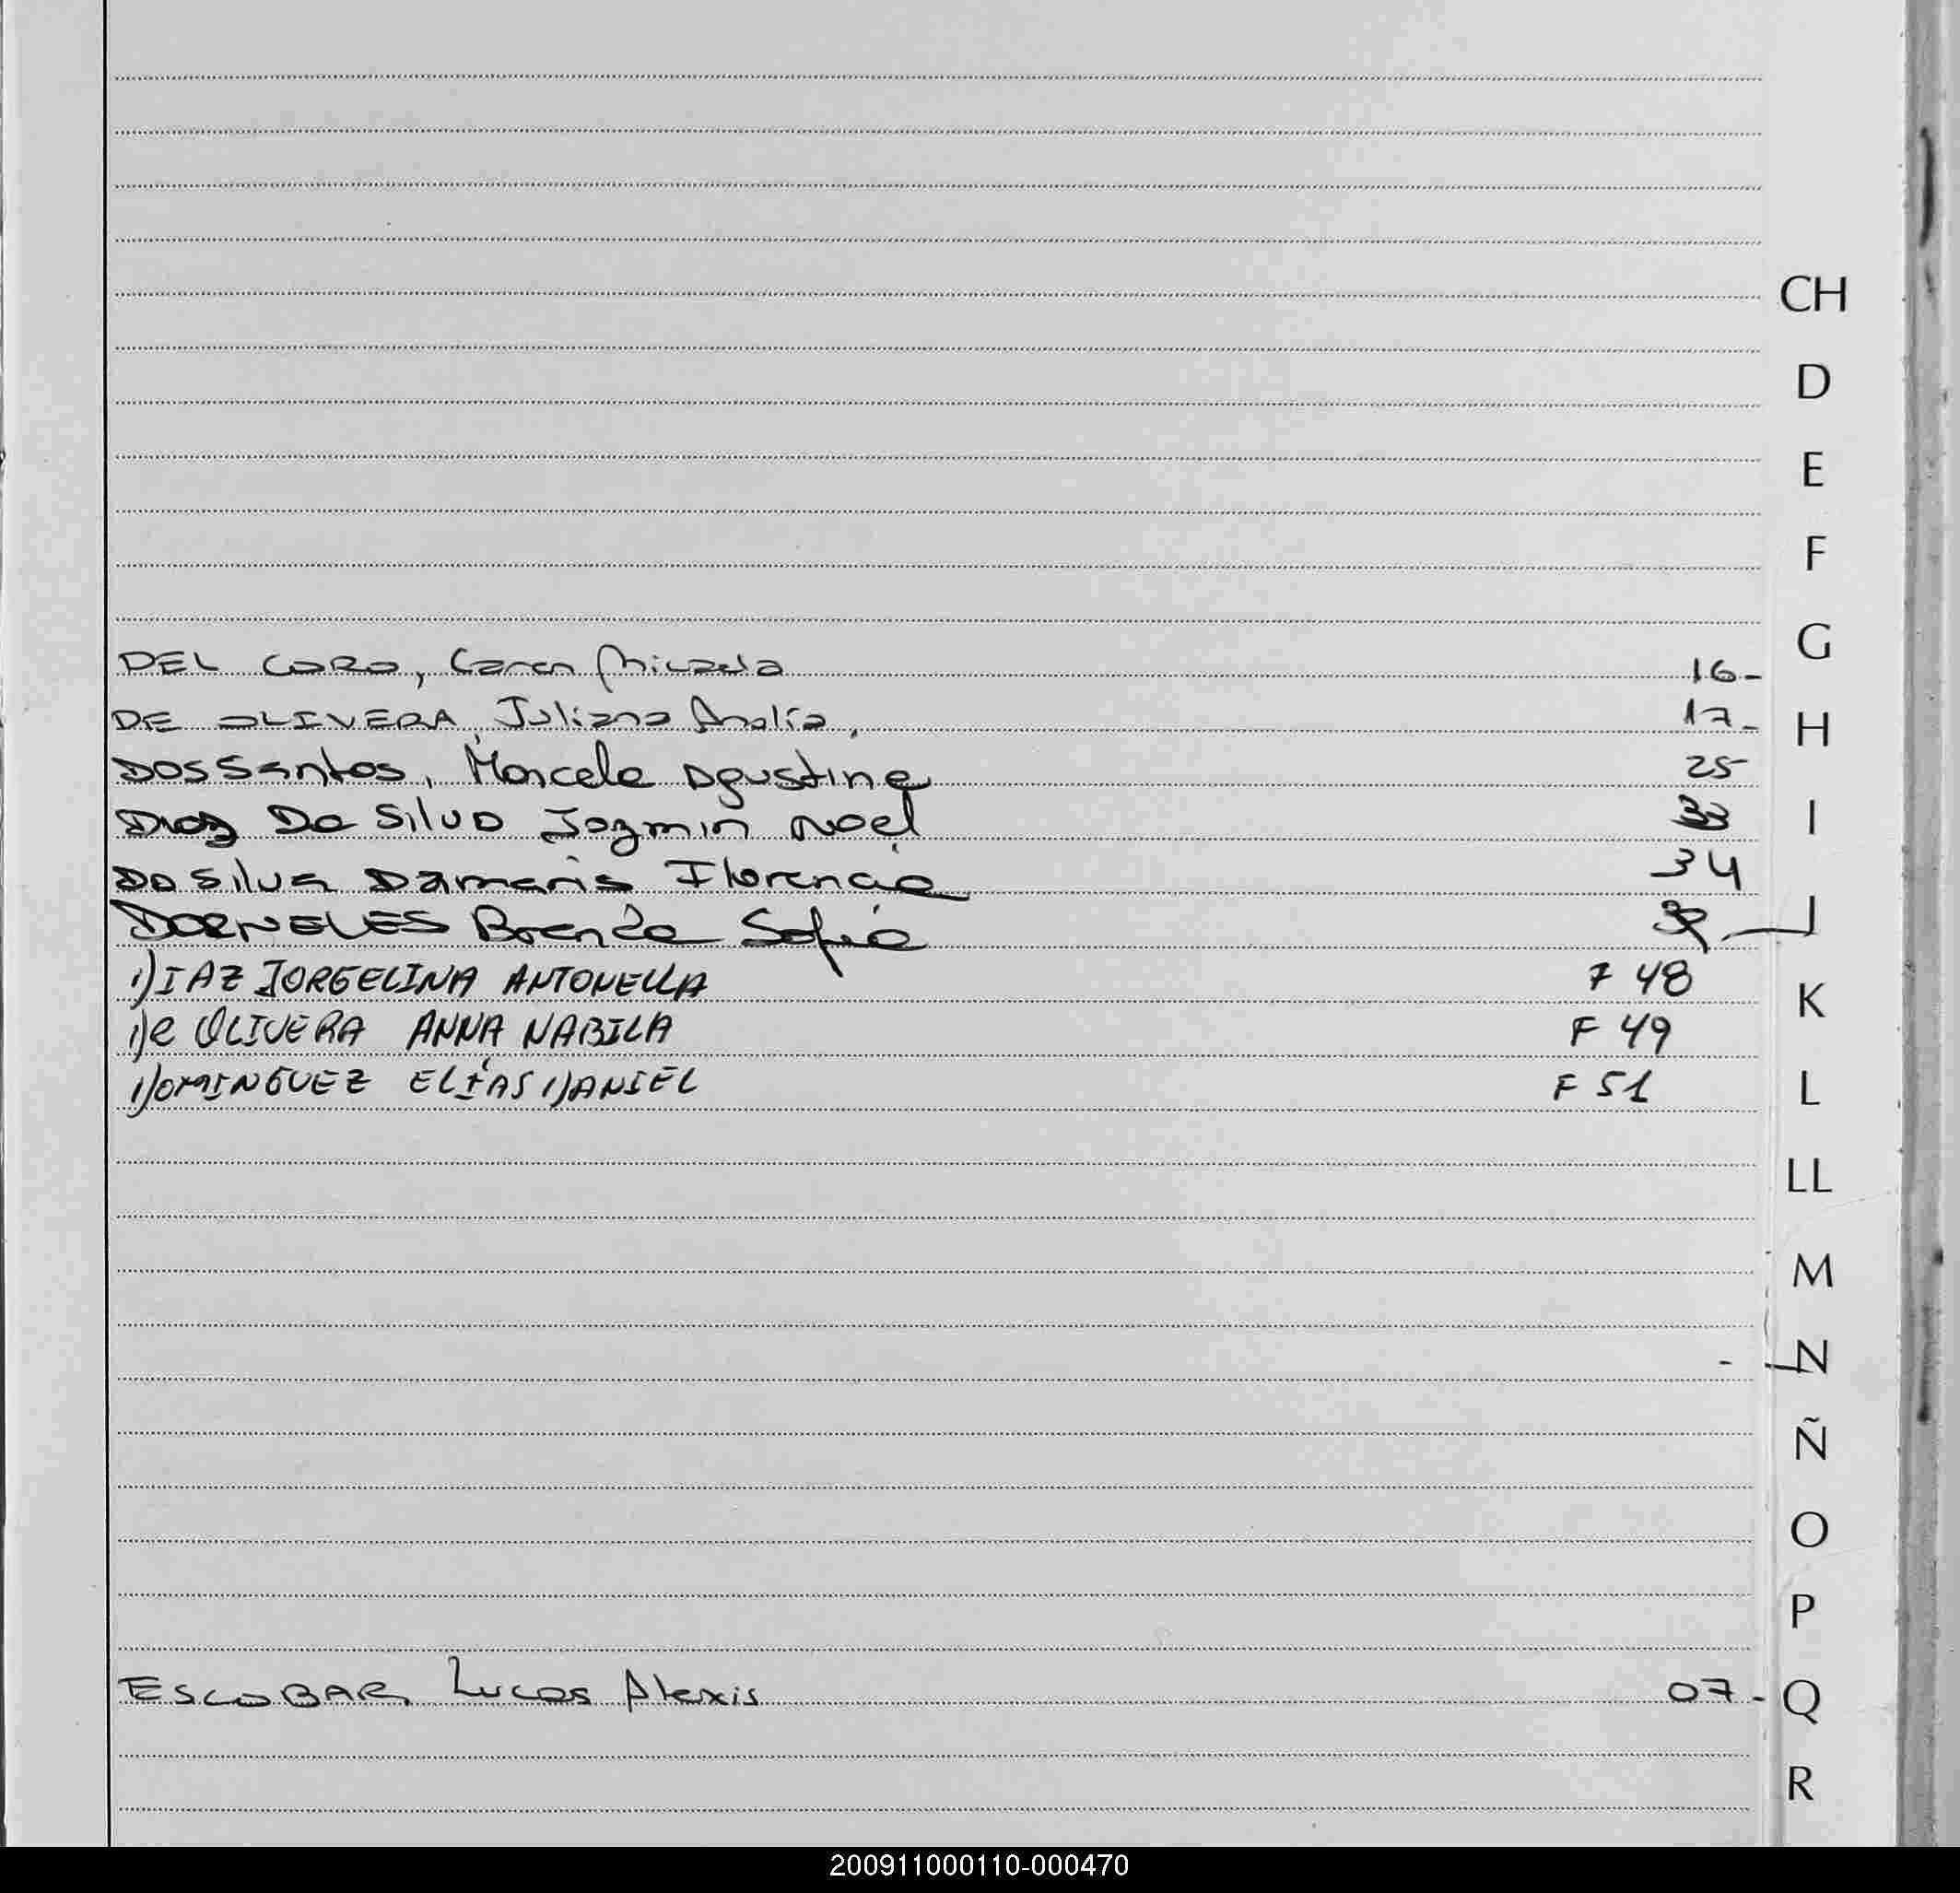 CH
D
E
F
G
DEL CORO, Caren Micaela 16-
DE OLIVERA, Juliana Analía, 17-
H
DOS Santos, Marcela Agustina 25
Diaz Da Silva Jazmin Noel 33
I
Da Silva Damaris Florencia 34
DORNELES Brenda Sofia
J
DIAZ JORGELINA ANTONELLA F 48
K
De OLIVERA ANNA NABILA F 49
DOMINGUEZ ELÍAS DANIEL F 51
L
LL
M
N
Ñ
O
P
ESCOBAR, Lucas Alexis 07-
Q
R
200911000110-000470